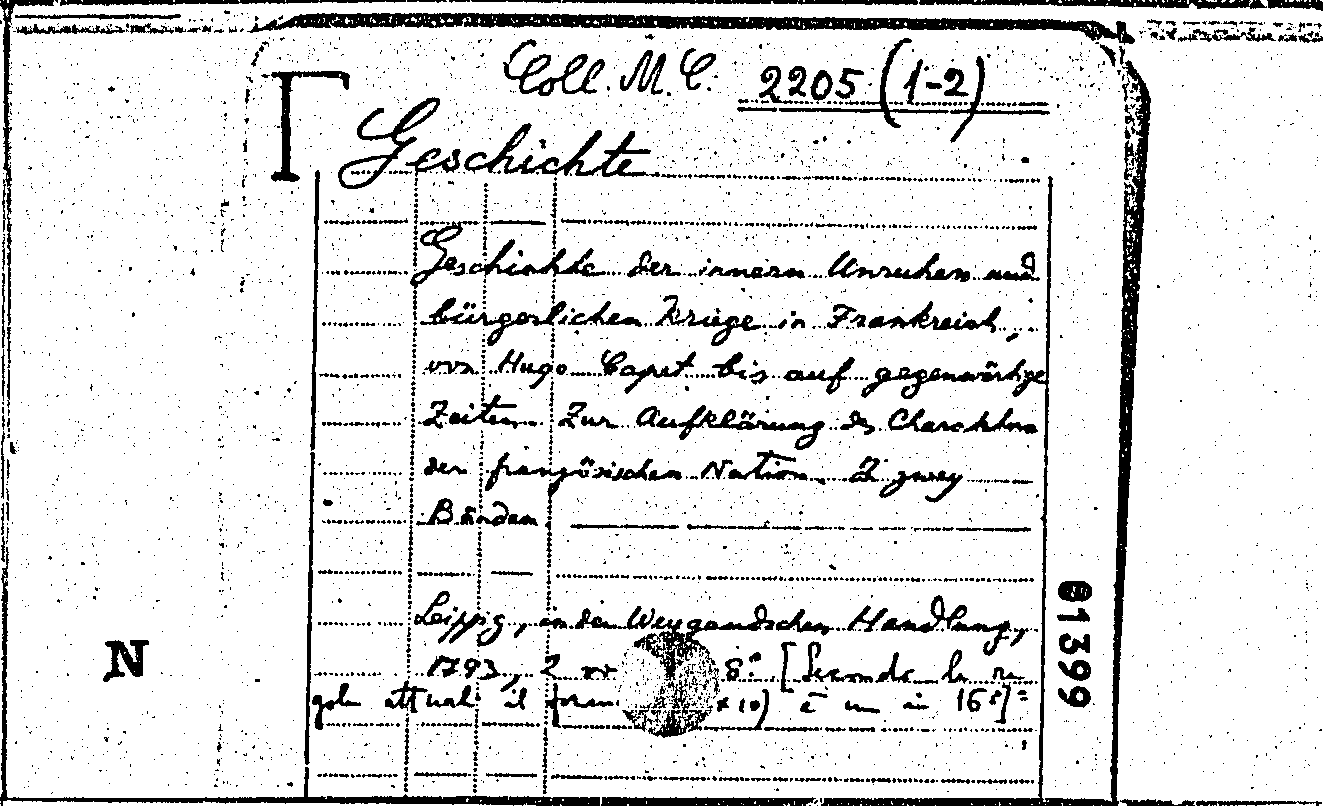 Coll. M. C. 2205 (1-2)
Geschichte
Geschichte der innern Unruhen und
bürgerlichen Kriege in Frankreich,
von Hugo Capet bis auf gegenwärtige
Zeiten. Zur Aufklärung des Charakters
der französischen Nation. In zwey
Bänden.
Leipzig, in der Weygandschen Handlung,
1793, 2 8.° [Secondo le re
gole attuali il form x 10) è un in 16°]=
N
01399